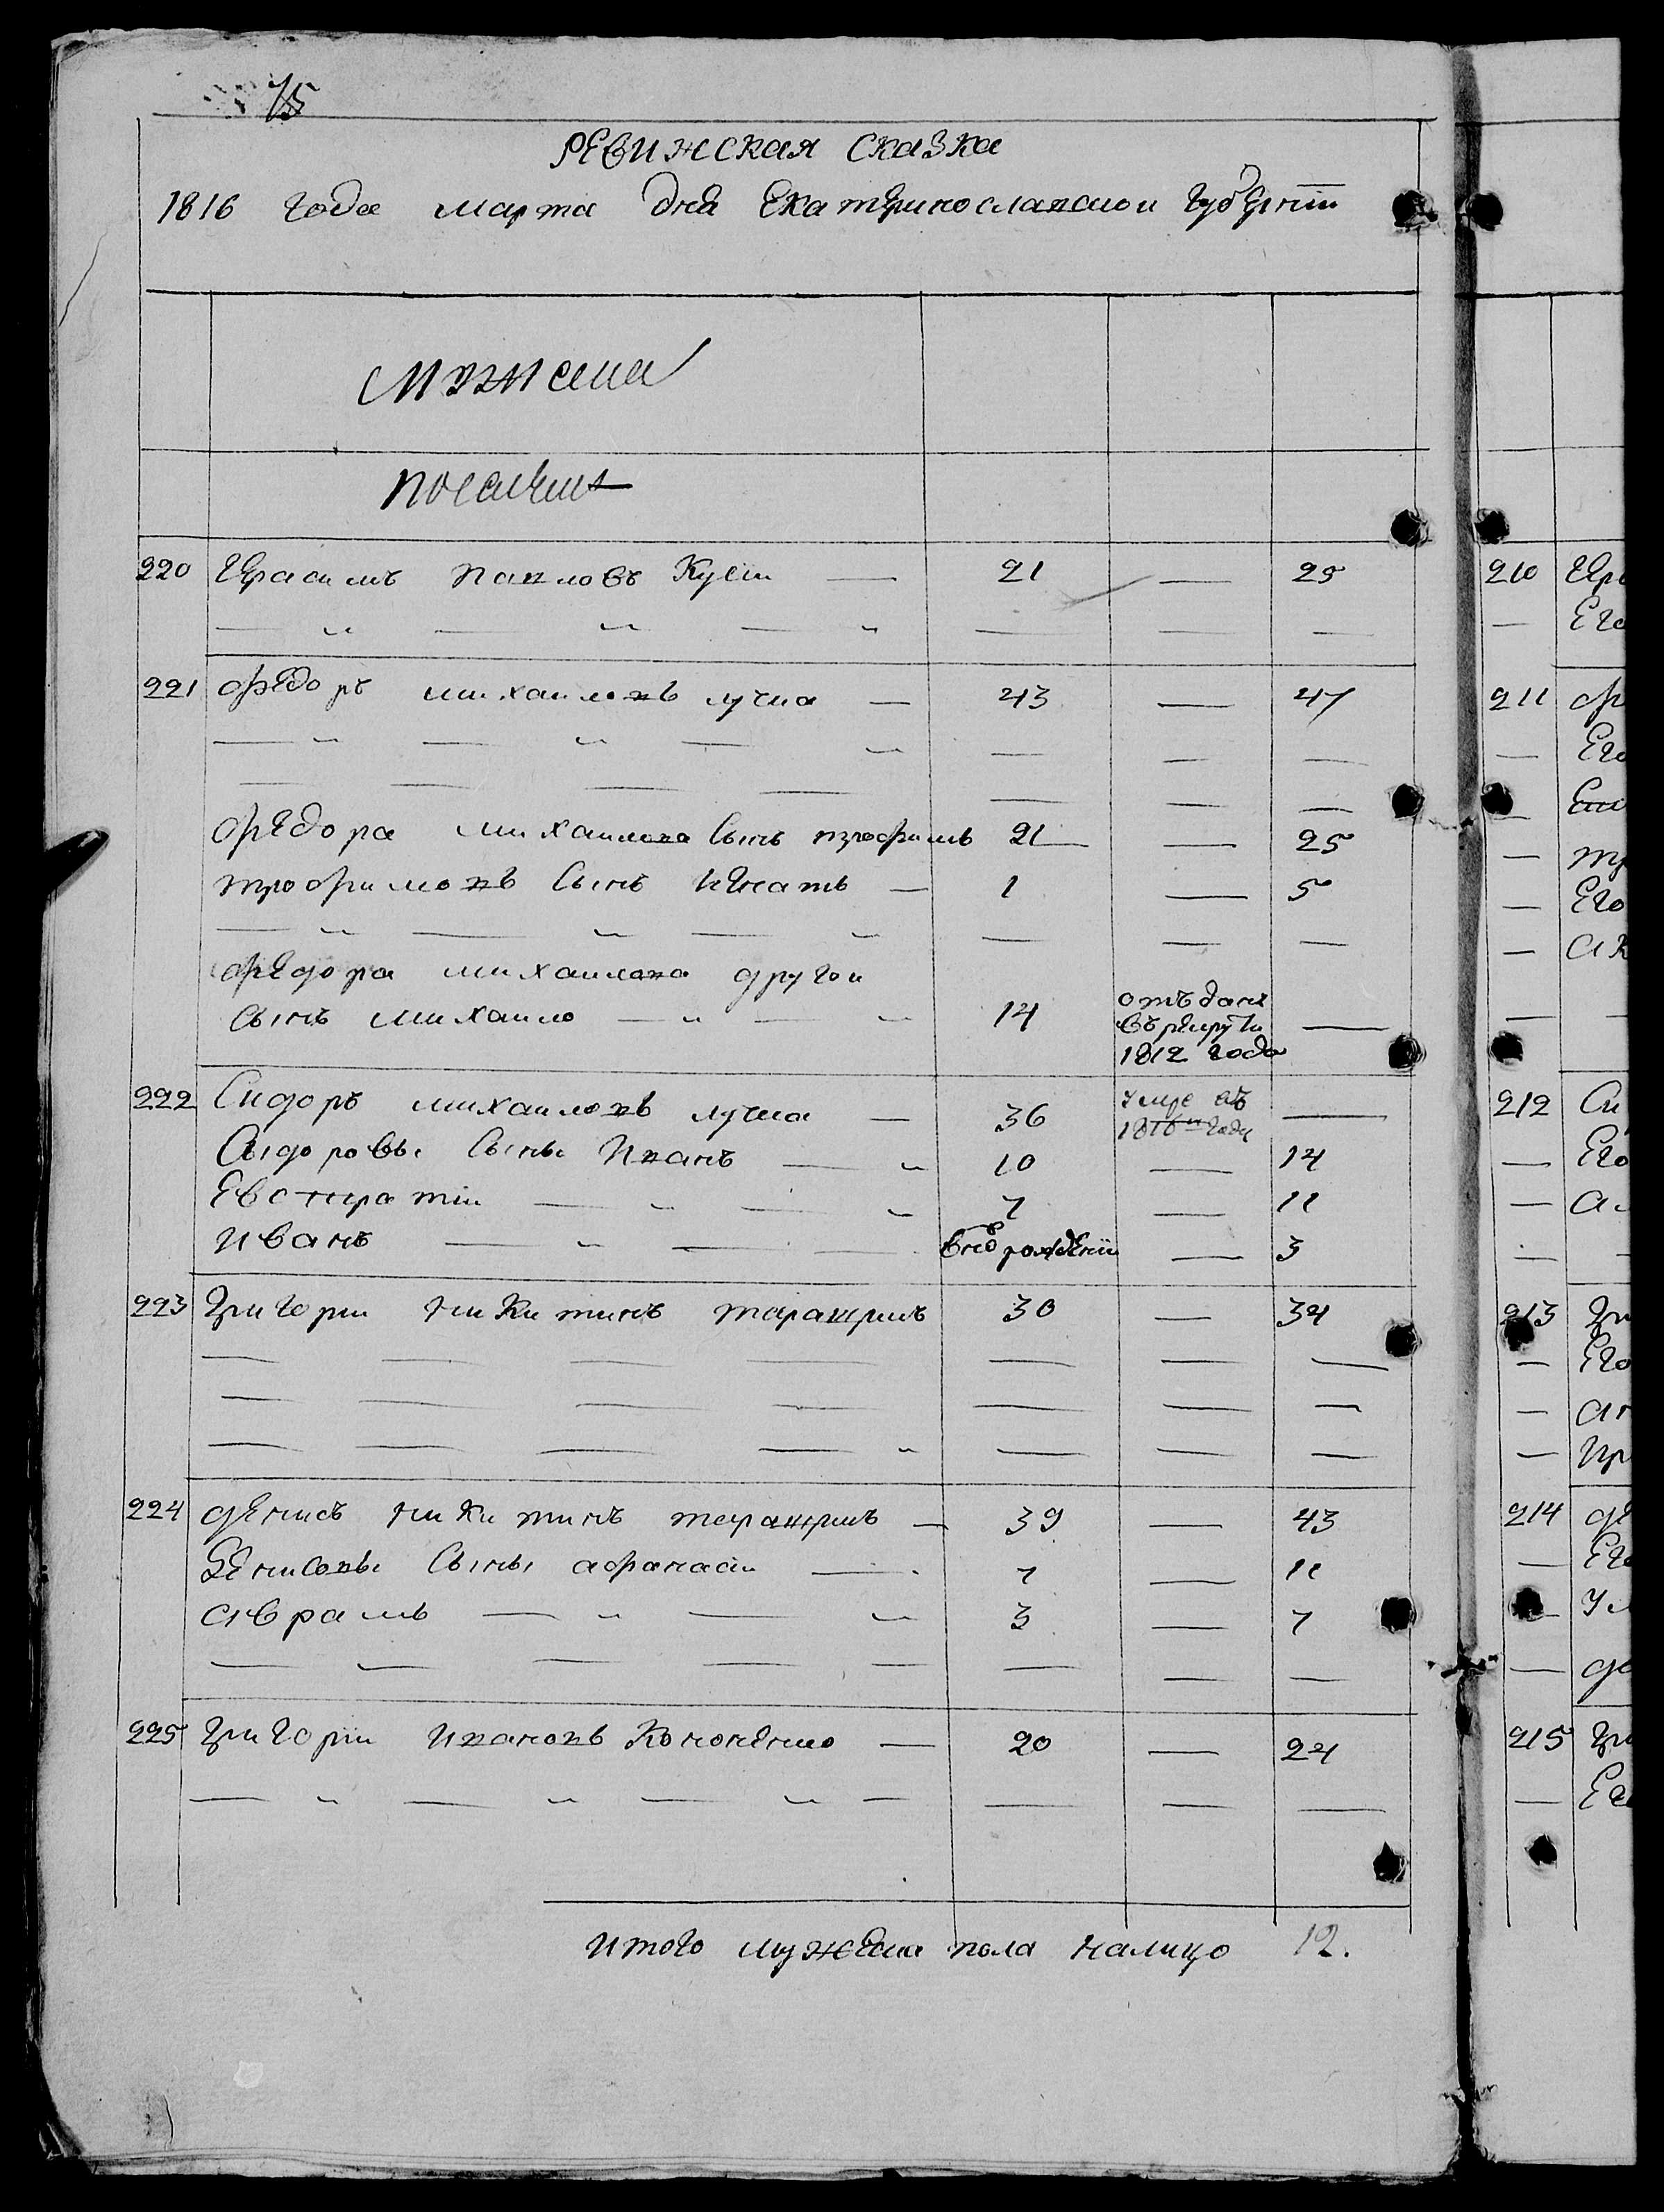 75
РЕВИЖСКАЯ СКАЗКА
1816 года марта дня Екатеринославской Губернии
мужеска
поселяня
220 Герасимъ Павловъ — 21 — 25
— „ — „ — „ — — —
221 Федоръ михаиловъ лучка — 43 — 47
— „ — „ — „ — — —
— — — — — — —
Федора михаилова Сынъ трофимъ 21 — 25
трофимовъ Сынъ Игнатъ — 1 — 5
— „ — „ — „ — — —
федора михаилова другои
Сынъ михаило — „ — „ 14 отъданъ въ рекруты 1812 года —
222 Сидоръ михаиловъ лучка — 36 умре въ 1816 годе —
Сидоровы Сыны Иванъ — „ 10 — 14
Евстратии — „ — „ 7 — 11
Иванъ — „ — — вновь рожденны — 3
223 Григории Никитинъ 30 — 34
— — — — — — —
— — — — — — —
— — — — „ — — —
224 денисъ Никитинъ — 39 — 43
Денисовы Сыны афанасии — 7 — 11
Аврамъ — „ — „ 3 — 7
— — — — — — — —
225 Григории Ивановъ Кононенко — 20 — 24
— „ — „ — „ — — — —
Итого мужеска пола налицо 12.
210
— Его
211
— Его
—
—
— Его
—
—
212 Си
— Его
—
—
213
— Его
—
—
214 де
— Его
—
—
215
—